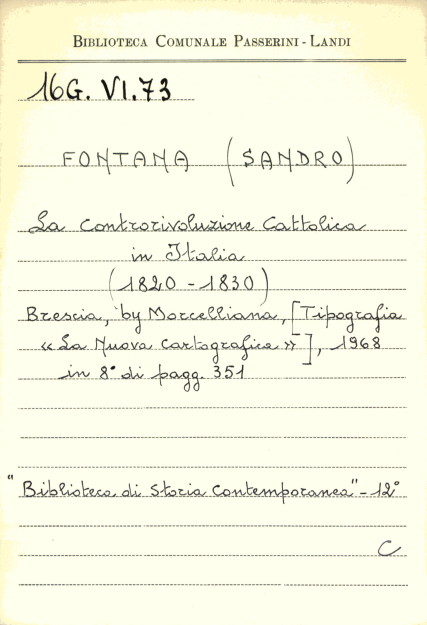 BIBLIOTECA COMUNALE PASSERINI - LANDI
16G. VI.73
FONTANA (SANDRO)
La controrivoluzione Cattolica
in Italia
(1820 - 1830)
Brescia, by Morcelliana, [Tipografia
«La Nuova Cartografica»], 1968
in 8° di pagg. 351
"Biblioteca di storia contemporanea" - 12°
C